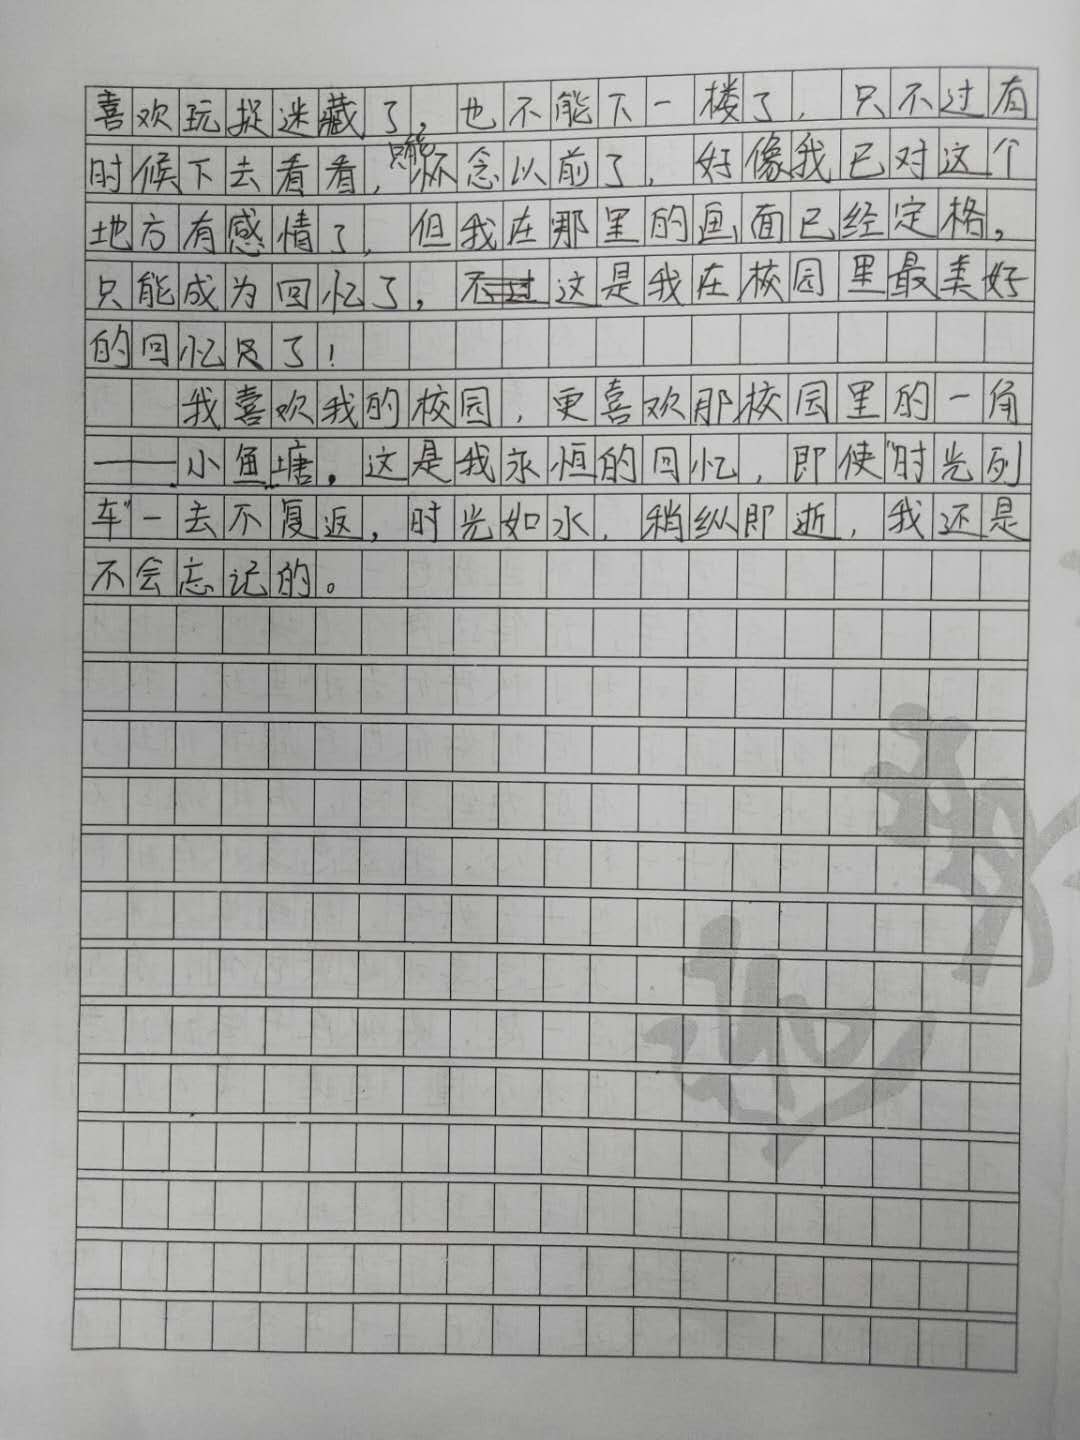 喜欢玩捉迷藏了，也不能下一楼了，只不过有
时候下去看看，只能怀念以前了，好像我已对这个
地方有感情了，但我在那里的画面已经定格，
只能成为回忆了，不过这是我在校园里最美好
的回忆员了！
我喜欢我的校园，更喜欢那校园里的一角
——小鱼塘。这是我永恒的回忆，即使“时光列
车”一去不复返，时光如水，稍纵即逝，我还是
不会忘记的。